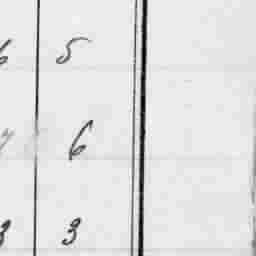 6 5
6
3 3